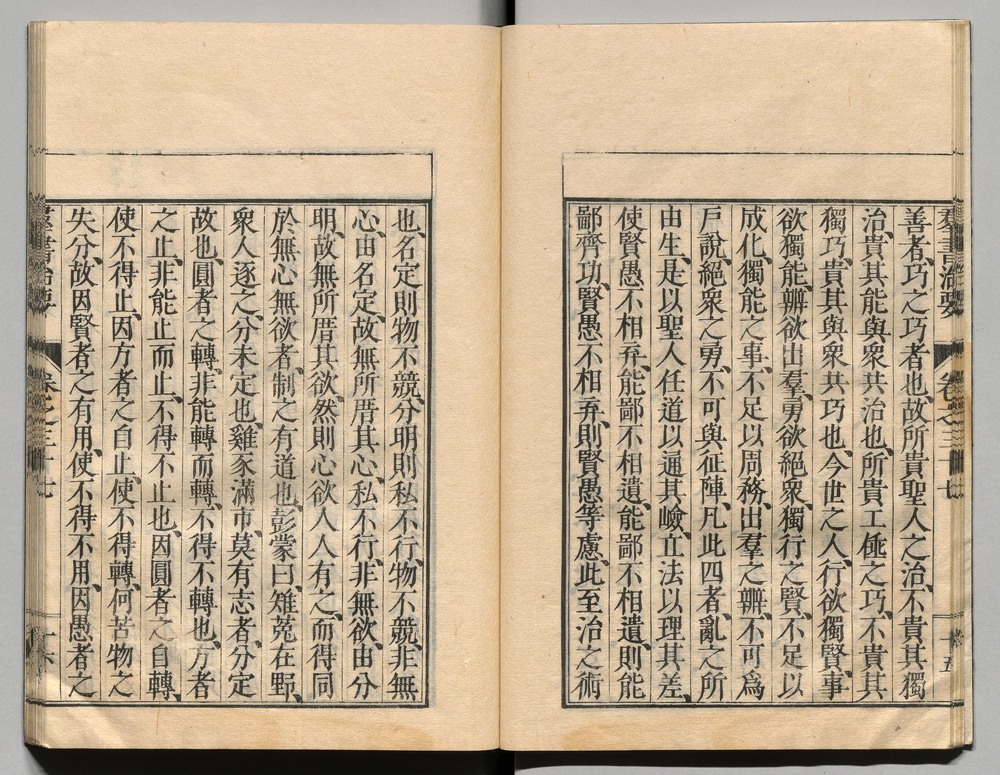 羣書治要 卷之三十七 十五
善者、巧之巧者也、故所貴聖人之治、不貴其獨
治、貴其能與衆共治也、所貴工倕之巧、不貴其
獨巧、貴其與衆共巧也、今世之人、行欲獨賢、事
欲獨能、辯欲出羣、勇欲絕衆、獨行之賢、不足以
成化、獨能之事、不足以周務、出羣之辯、不可爲
戶說、絕衆之勇、不可與征陣、凡此四者、亂之所
由生、是以聖人任道以通其嶮、立法以理其差、
使賢愚不相弃、能鄙不相遺、能鄙不相遺、則能
鄙齊功、賢愚不相弃、則賢愚等慮、此至治之術
也、名定則物不競、分明則私不行、物不競、非無
心、由名定、故無所厝其心、私不行、非無欲、由分
明、故無所厝其欲、然則心欲人人有之、而得同
於無心無欲者、制之有道也、彭蒙曰、雉菟在野、
衆人逐之、分未定也、雞豕滿市、莫有志者、分定
故也、圓者之轉、非能轉而轉、不得不轉也、方者
之止、非能止而止、不得不止也、因圓者之自轉、
使不得止、因方者之自止、使不得轉、何苦物之
失分、故因賢者之有用、使不得不用、因愚者之
羣書治要 卷之三十七